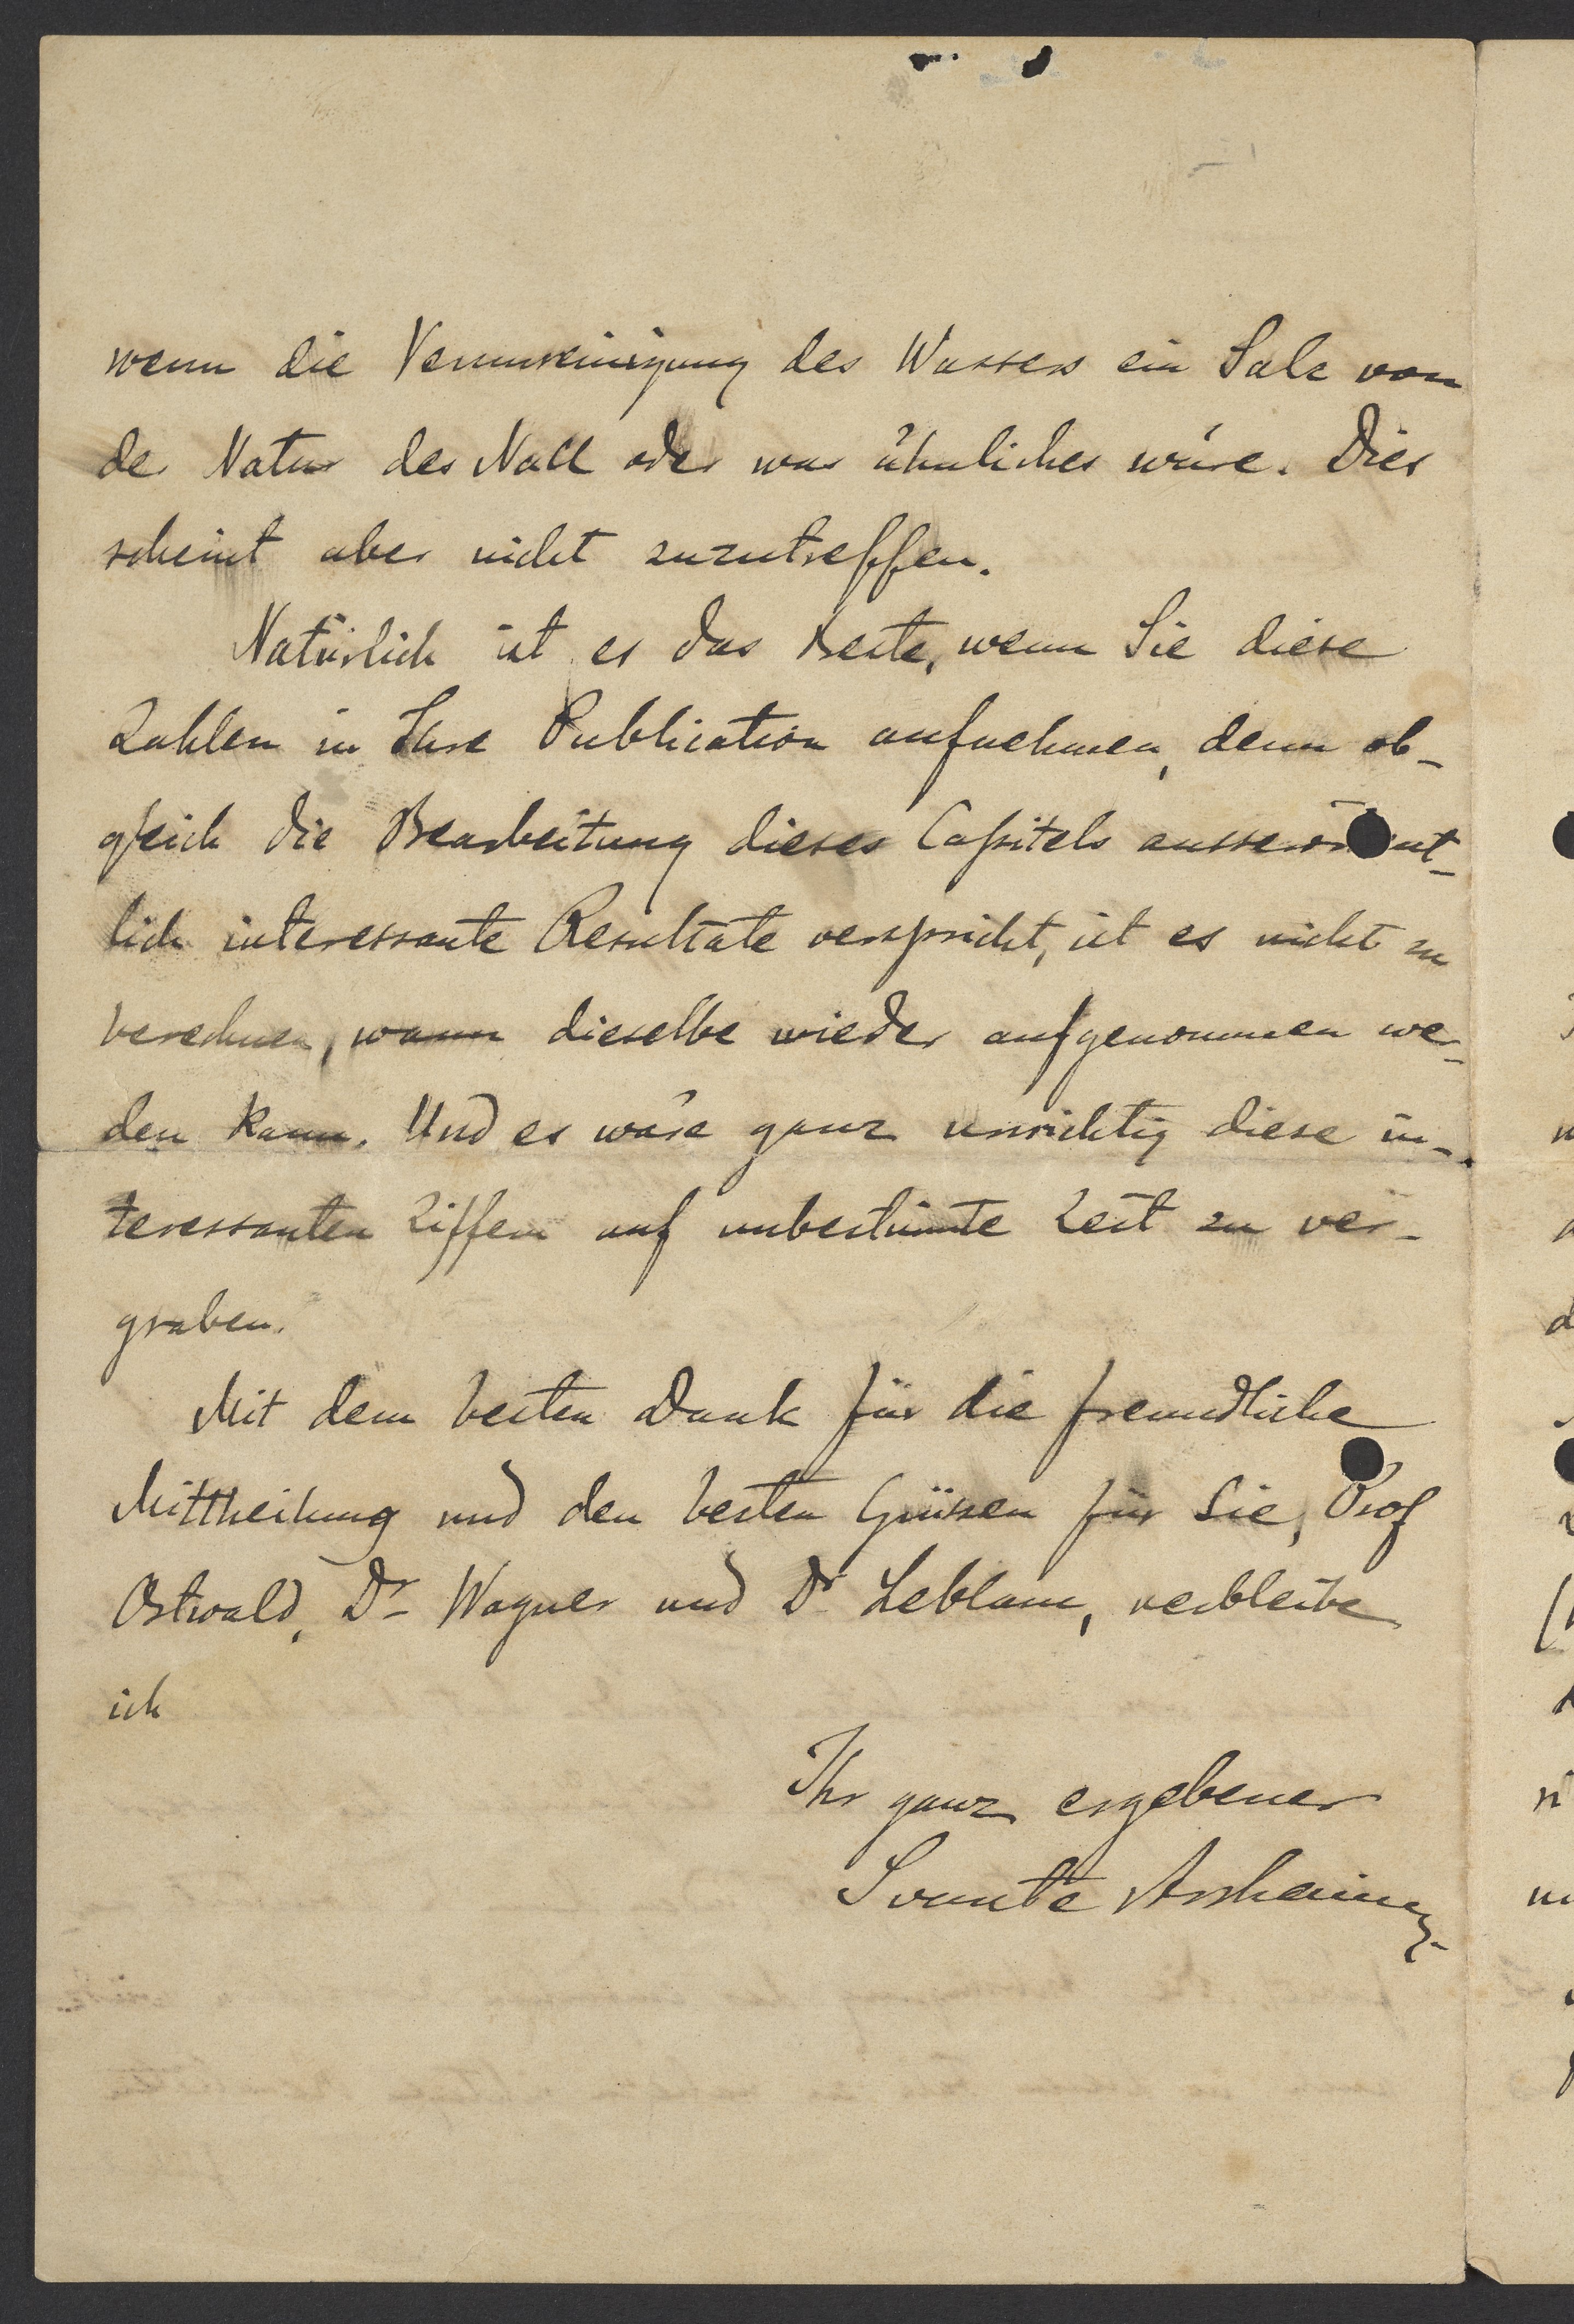 wenn die Verunreinigung des Wassers ein Salz von
der Natur des NaCl oder was ähnliches wäre. Dies
scheint aber nicht zuzutreffen.
Natürlich ist es das Beste, wenn Sie diese
Zahlen in Ihre Publication aufnehmen, denn ob-
gleich die Bearbeitung dieses Capitels ausseror ent-
lich interessante Resultate verspricht, ist es nicht zu
berechnen, wann dieselbe wieder aufgenommen wer-
den kann. Und es wäre ganz unrichtig diese in-
teressanten Ziffern auf unbestimmte Zeit zu ver-
graben.
Mit dem besten Dank für die freundliche
Mittheilung und den besten Grüssen für Sie, Prof
Ostwald, Dr Wagner und Dr Leblanc, verbleibe
ich
Ihr ganz ergebener
Svante Arrhenius